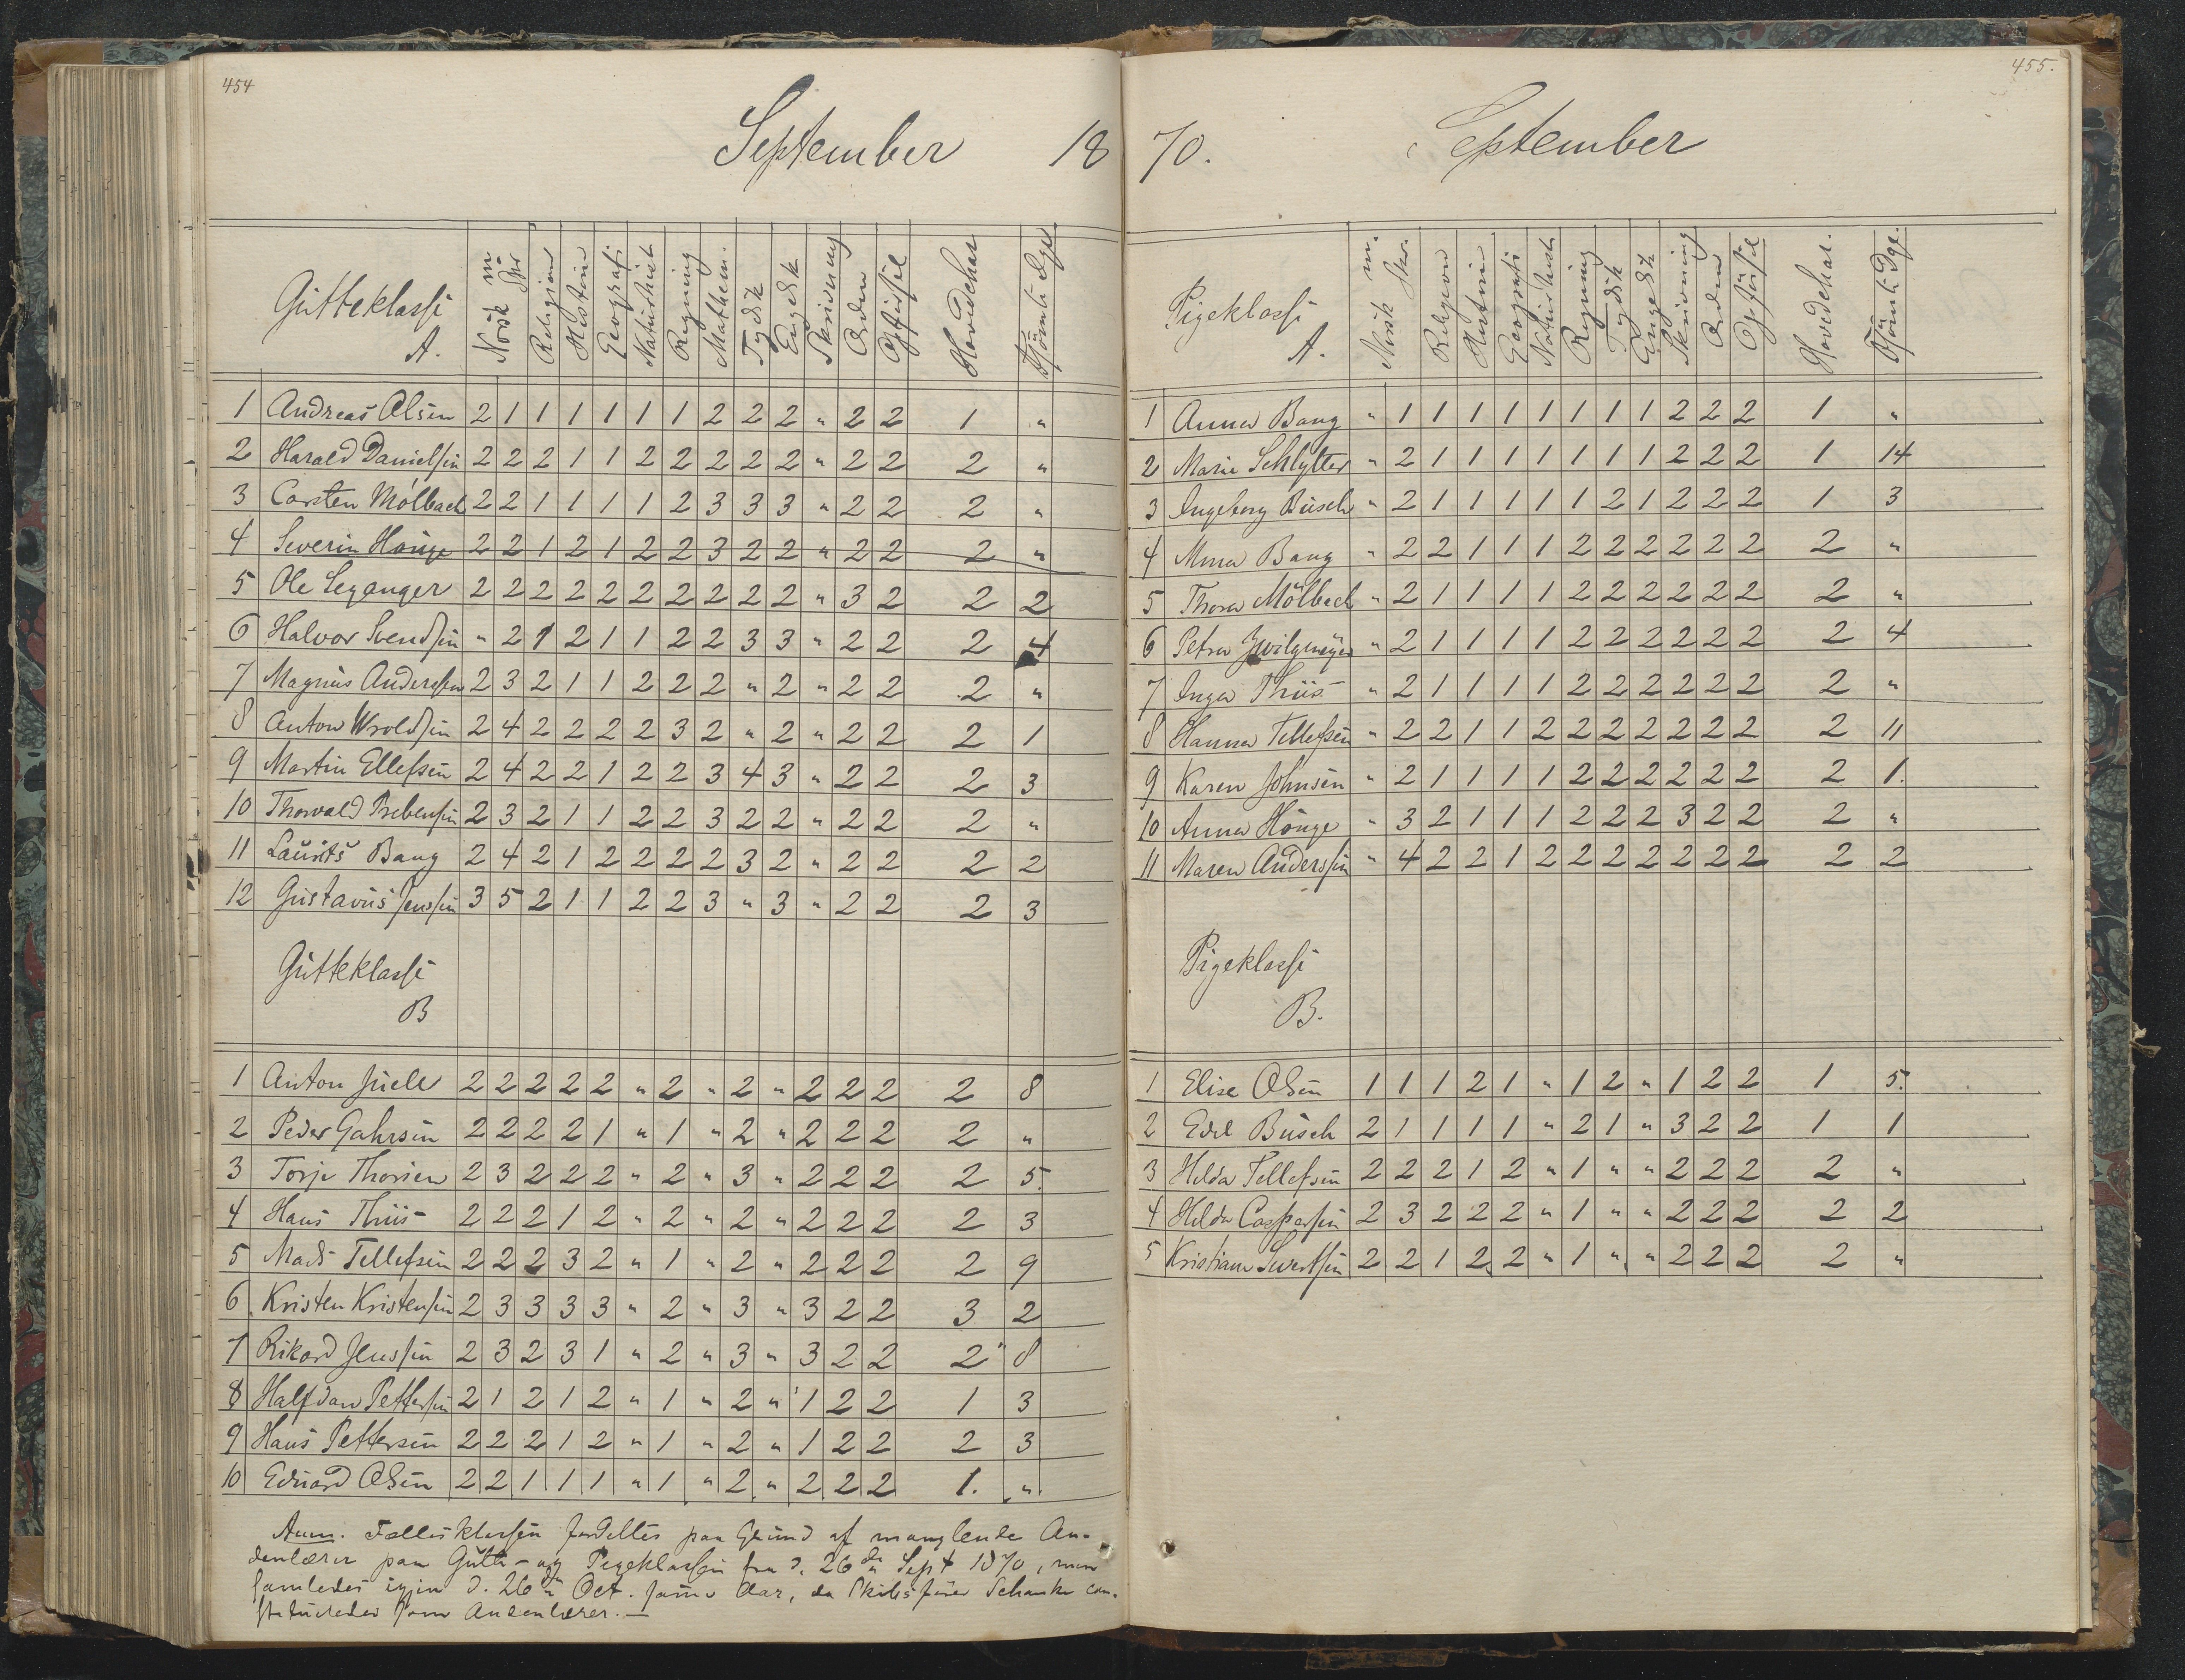 454
September 18
Gutteklasse
A.
Norsk m Spr
Religion
Historie
Geografi
Naturhist
Regning
Mathem.
Tydsk
Engelsk
Skrivning
Orden
Opførsel
Hovedchar
Forsømte Dge
1 Andreas Olsen 2 1 1 1 1 1 1 2 2 2 " 2 2 1 "
2 Harald Danielsen 2 2 2 1 1 2 2 2 2 2 " 2 2 2 "
3 Carsten Mölbach 2 2 1 1 1 1 2 3 3 3 " 2 2 2 "
4 Severin Houge 2 2 1 2 1 2 2 3 2 2 " 2 2 2 "
5 Ole Leganger 2 2 2 2 2 2 2 2 2 2 " 3 2 2 2
6 Halvor Svendsen " 2 1 2 1 1 2 2 3 3 " 2 2 2 4
7 Magnus Anderssen 2 3 2 1 1 2 2 2 " 2 " 2 2 2 "
8 Anton Wroldsen 2 4 2 2 2 2 3 2 " 2 " 2 2 2 1
9 Martin Ellefsen 2 4 2 2 1 2 2 3 4 3 " 2 2 2 3
10 Thorvald Prebensen 2 3 2 1 1 2 2 3 2 2 " 2 2 2 "
11 Laurits Bang 2 4 2 1 2 2 2 2 3 2 " 2 2 2 2
12 Gustavus Jenssen 3 5 2 1 1 2 2 3 " 3 " 2 2 2 3
Gutteklasse
B
1 Anton Juell 2 2 2 2 2 " 2 " 2 " 2 2 2 2 8
2 Peder Gahrsen 2 2 2 2 1 " 1 " 2 " 2 2 2 2 "
3 Torje Thorsen 2 3 2 2 2 " 2 " 3 " 2 2 2 2 5.
4 Hans Thiis 2 2 2 1 2 " 2 " 2 " 2 2 2 2 3
5 Mads Tellefsen 2 2 2 3 2 " 1 " 2 " 2 2 2 2 9
6 Kristen Kristensen 2 3 3 3 3 " 2 " 3 " 3 2 2 3 2
7 Rikard Jenssen 2 3 2 3 1 " 2 " 3 " 3 2 2 2 8
8 Halfdan Pettersen 2 1 2 1 2 " 1 " 2 " 1 2 2 1 3
9 Hans Pettersen 2 2 2 1 2 " 1 " 2 " 1 2 2 2 3
10 Eduard Olsen 2 2 1 1 1 " 1 " 2 " 2 2 2 1. "
Anm. Fællesklassen fordeltes paa Grund af manglende An-
denlærer paa Gutte- og Pigeklassen fra d. 26de Sept 1870, men
samledes igjen d. 26de Oct. samme Aar, da Schanke con-
stitueredes som Andenlærer. —
455.
70. September
Pigeklasse
A.
Norsk m. Skr.
Religion
Historie
Geografi
Naturhist
Regning
Tydsk
Engelsk
Skrivning
Orden
Opførsel
Hovedchar.
Forsømte Dge.
1 Anna Bang " 1 1 1 1 1 1 1 1 2 2 2 1 "
2 Marie Schlytter " 2 1 1 1 1 1 1 1 2 2 2 1 14
3 Ingeborg Busch " 2 1 1 1 1 1 2 1 2 2 2 1 3
4 Mina Bang " 2 2 1 1 1 2 2 2 2 2 2 2 "
5 Thora Mölbach " 2 1 1 1 1 2 2 2 2 2 2 2 "
6 Petra Zwilgmeyer " 2 1 1 1 1 2 2 2 2 2 2 2 4
7 Inga Thiis " 2 1 1 1 1 2 2 2 2 2 2 2 "
8 Hanna Tellefsen " 2 2 1 1 2 2 2 2 2 2 2 2 11
9 Karen Johnsen " 2 1 1 1 1 2 2 2 2 2 2 2 1.
10 Anna Houge " 3 2 1 1 1 2 2 2 3 2 2 2 "
11 Maren Anderssen " 4 2 2 1 2 2 2 2 2 2 2 2 2
Pigeklasse
B.
1 Elise Olsen 1 1 1 2 1 " 1 2 " 1 2 2 1 5.
2 Edel Busch 2 1 1 1 1 " 2 1 " 3 2 2 1 1
3 Hilda Tellefsen 2 2 2 1 2 " 1 " " 2 2 2 2 "
4 Hilda Caspersen 2 3 2 2 2 " 1 " " 2 2 2 2 2
5 Kristiane Sivertsen 2 2 1 2 2 " 1 " " 2 2 2 2 "